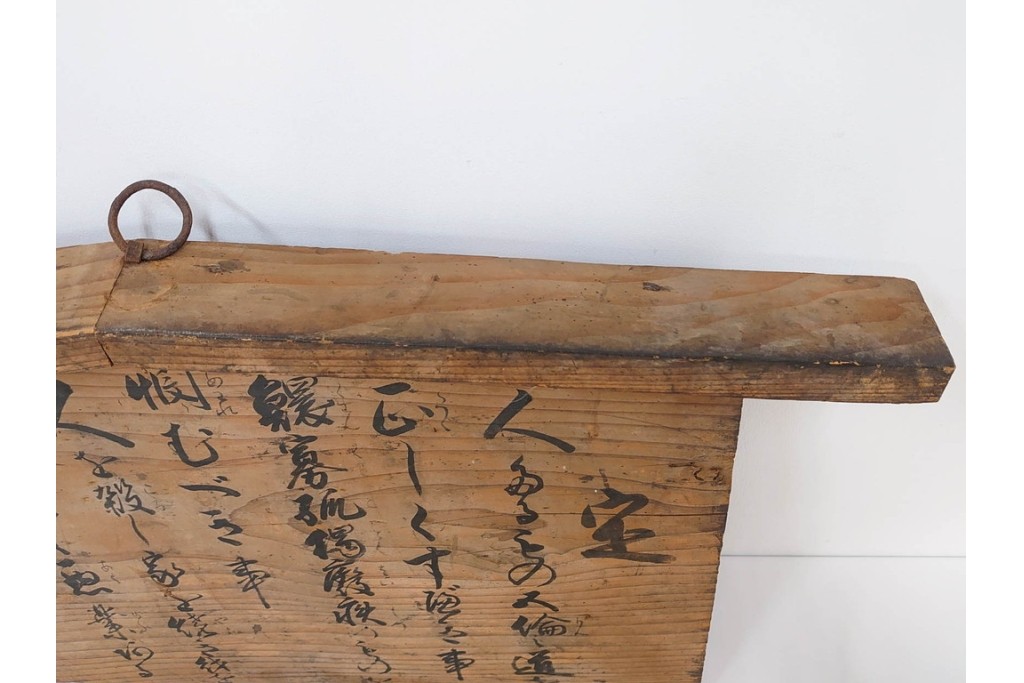 定
人たるもの五倫之道
正しくすべき事
鰥寡孤独廃疾のもの
憫むべき事
人を殺し家を焼き財
悪業ある